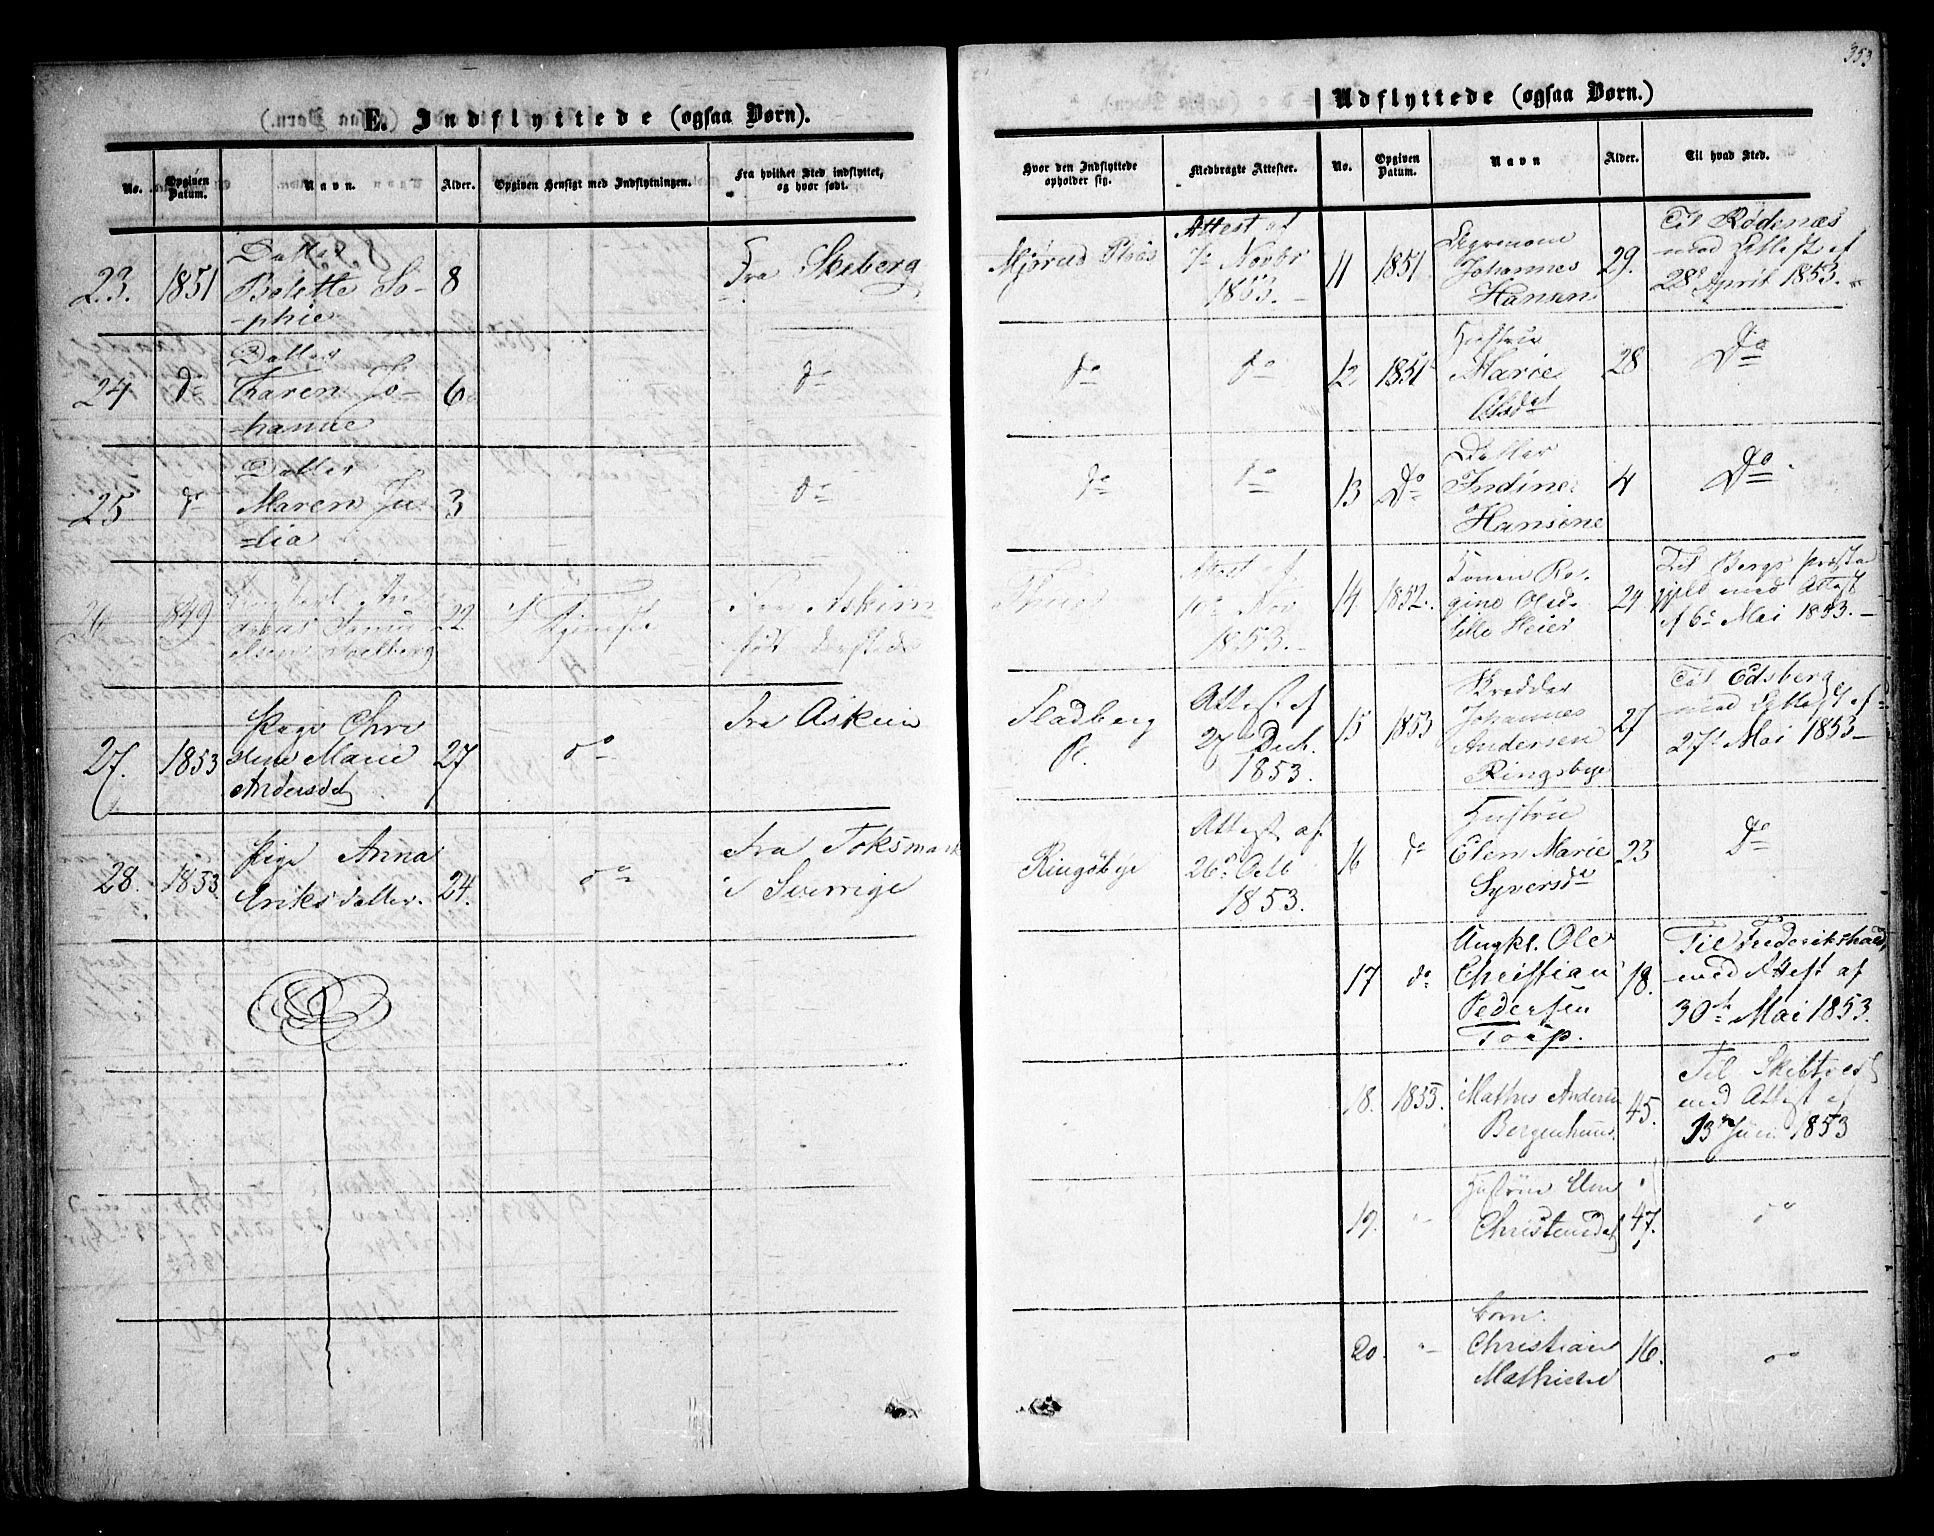 353
E. Indflyttede (ogsaa Børn).
No.
Opgiven Datum.
Navn.
Alder.
Opgiven Hensigt med Indflytningen.
Fra hvilket Sted indflyttet, og hvor født.
Hvor den Indflyttede opholder sig.
Medbragte Attester.
23.
1851
Datter
Bolette So-
-phie
8
Fra Skeberg
Mjørud Plads
Attest af
7de Novbr
1853.
24
do
Datter
Karen Jo-
-hanne
6
do
do
do
25
do
Datter
Maren Ju-
-lia
3
do
do
do
1849
22
Tjeneste
Fra Askim
født dersteds
Attest af
10de Nov
1853.
27.
1853
Pige Chri
stine Marie
Andersdtr
27
do
Fra Askim
Fladberg
Pl.
Attest af
27 Decb.
1853.
28.
1853
Pige Anna
Eriksdatter.
24.
do
Fra Foksmark
i Sverrige
Ringsbye
Attest af
26de Octb
1853.
Udflyttede (ogsaa Børn.)
No.
Opgiven Datum.
Navn
Alder.
Til hvad Sted.
11
1851
Johannes
Hansen
29.
Til Rødenæs
med Attest af
28de April 1853.
12
1851
Hustru
Marie
Olsdtr
28
Do
13
Do
Datter
Indine
Hansine
4
Do
14
1852.
Konen Re-
gine Oles-
24
Til Bergs Præste
gjeld med Attest
af 6te Mai 1853.
15
1853
Skrædder
Johannes
Andersen
Ringsbye
27
Til Edsberg
med Attest af
27de Mai 1853
16
do
Hustru
Elen Marie
Syversdtr
23
Do
17
do
Ungkl. Ole
Christian
Pedersen
Torp.
18.
Til Frederikshald
med Attest af
30te Mai 1853.
18.
1853.
Mathis Andersen
Bergenhuus.
45.
Til Skibtvedt
med Attest af
13 Juni 1853
19.
"
Hustrue Elen
Christensdat
47.
do
20.
"
Børn.
Christian
Mathisen
16.
do